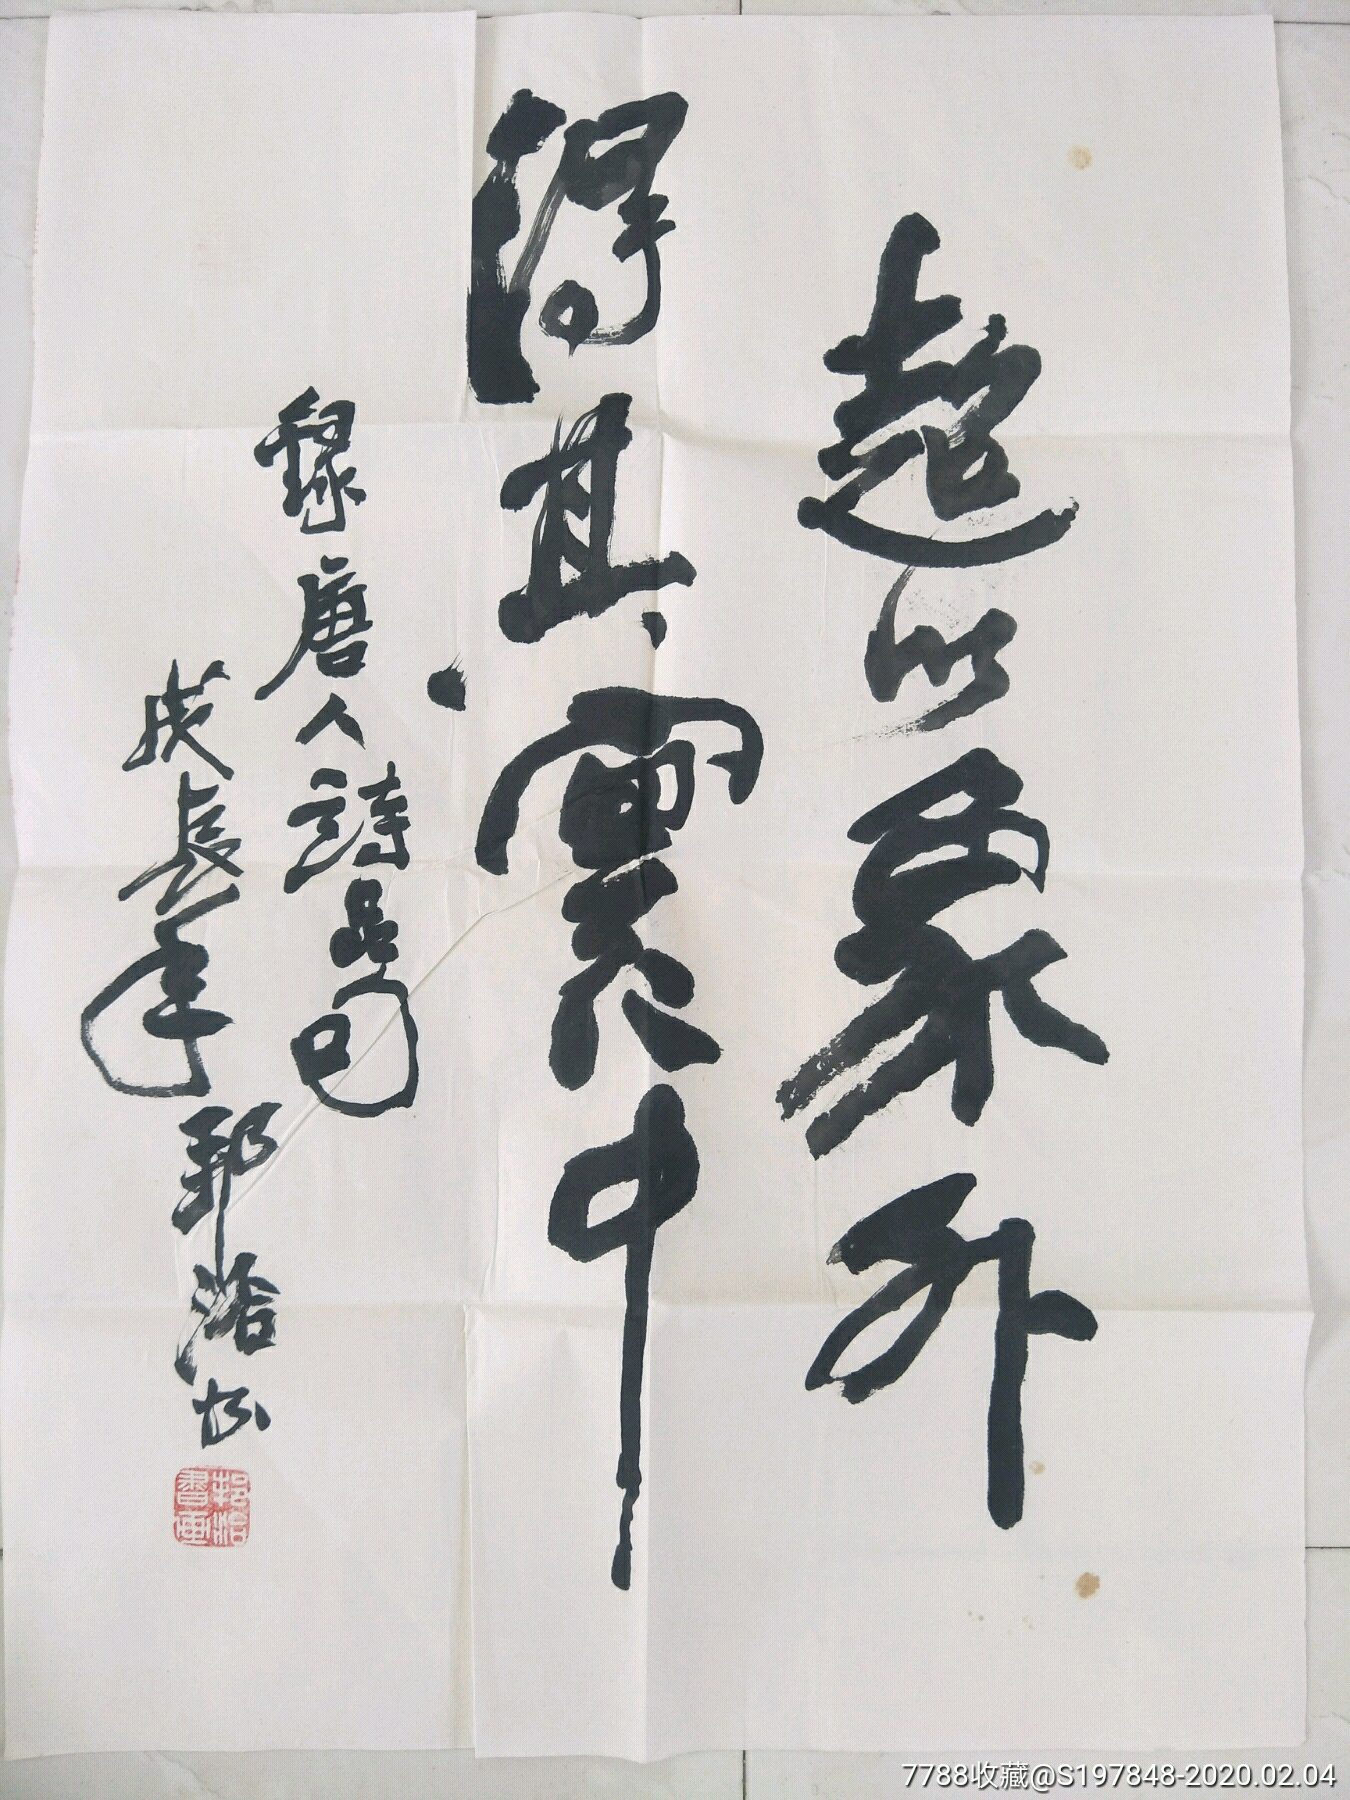 超以象外
得其寰中
錄唐人詩品句
戊辰年邢洽书
邢洽
書画
7788收藏@S197848-2020.02.04